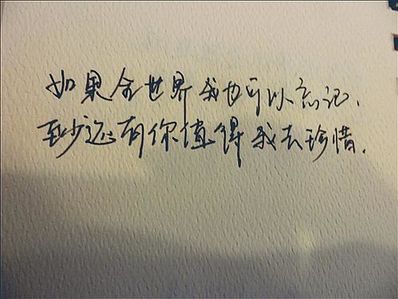 如果全世界我也可以忘记,
至少还有你值得我去珍惜.